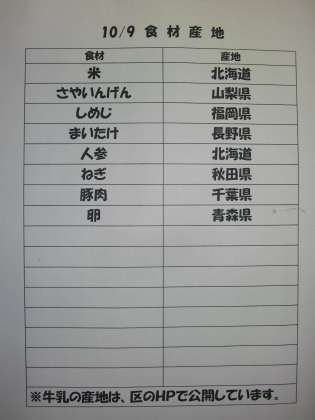 10/9 食材産地
食材 産地
米 北海道
さやいんげん 山梨県
しめじ 福岡県
まいたけ 長野県
人参 北海道
ねぎ 秋田県
豚肉 千葉県
卵 青森県
※牛乳の産地は、区のHPで公開しています。